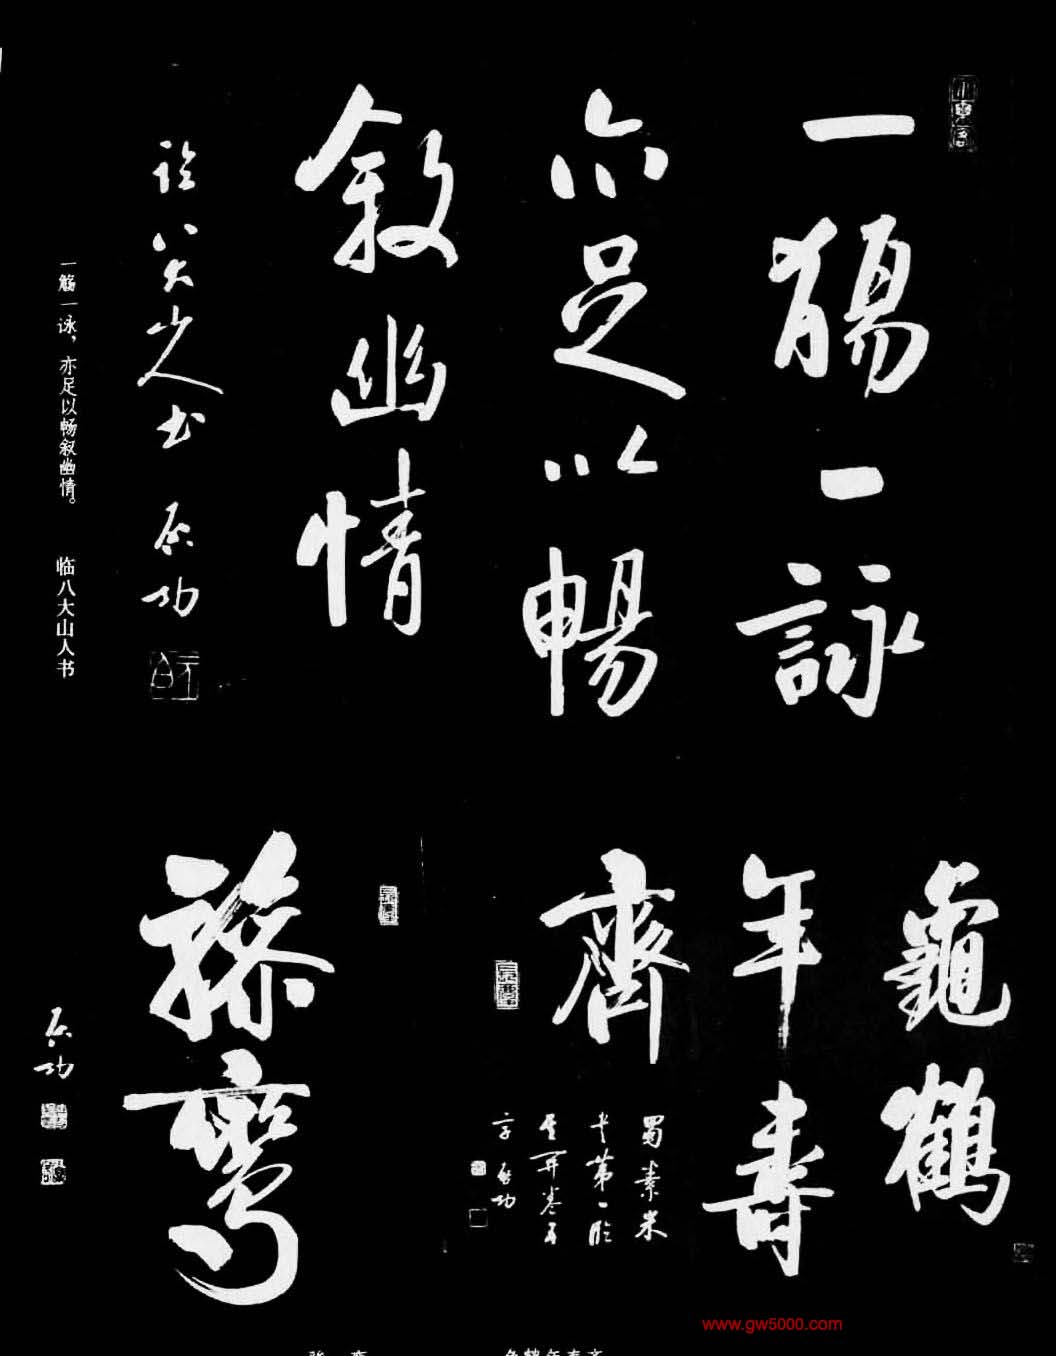 一觴一詠
亦足以暢
敘幽情
临八大山人书 启功
一觞一咏，亦足以畅叙幽情。 临八大山人书
龜鶴
年壽
齊
蜀素米
卷第一
字 启功
启功
www.gw5000.com